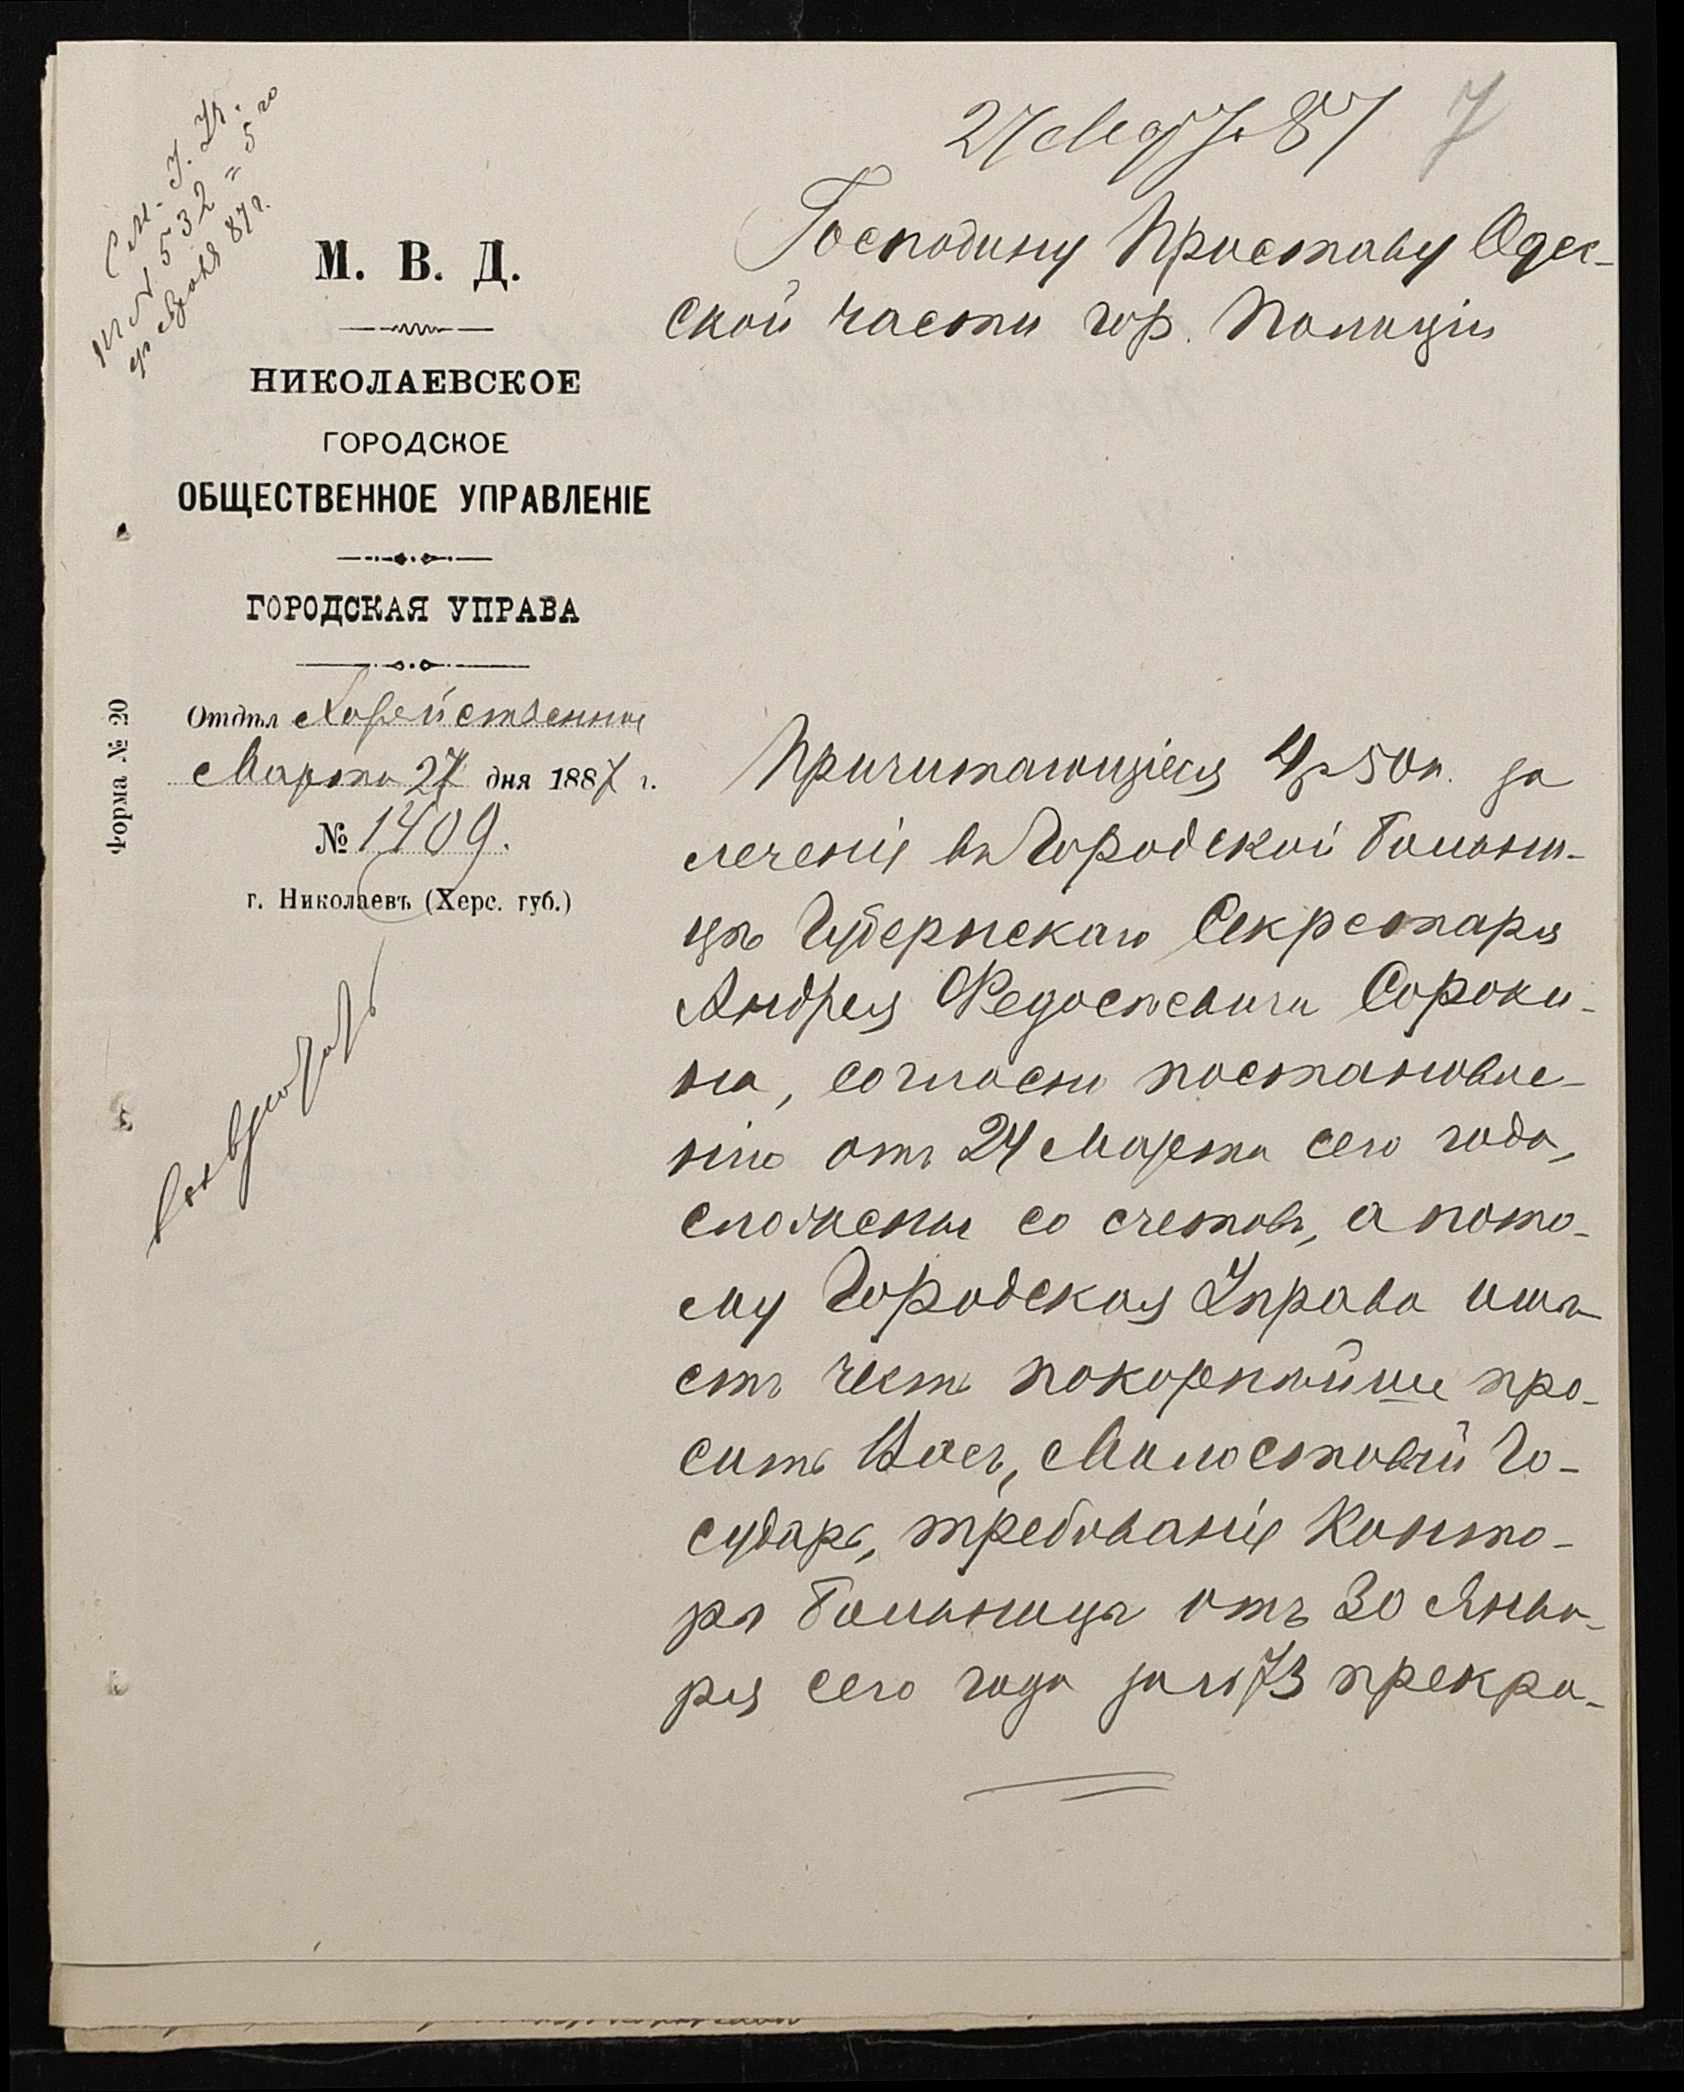 27 Мар 87
7
Господину Приставу Одес-
ской части гор. Полиціи
М. В. Д.
НИКОЛАЕВСКОЕ
ГОРОДСКОЕ
ОБЩЕСТВЕННОЕ УПРАВЛЕНІЕ
ГОРОДСКАЯ УПРАВА
Отдѣл Хозяйственный
Марта 27 дня 1887 г.
№ 1409.
г. Николаевъ (Херс. губ.)
Форма № 20
Причитающіеся 4 р 50 к. за
леченіе въ Городской больни-
цѣ Губернскаго Секретаря
Андрея Федосѣевича Сороки-
на, согласно постановле-
нію отъ 24 Марта сего года,
сложены со счетовъ, а пото-
му Городская Управа имѣ-
етъ честь покорнѣйше про-
сить Васъ, Милостивый Го-
сударь, требованіе Конто-
ры больницы отъ 30 Янва-
ря сего года за № 73 прекра-